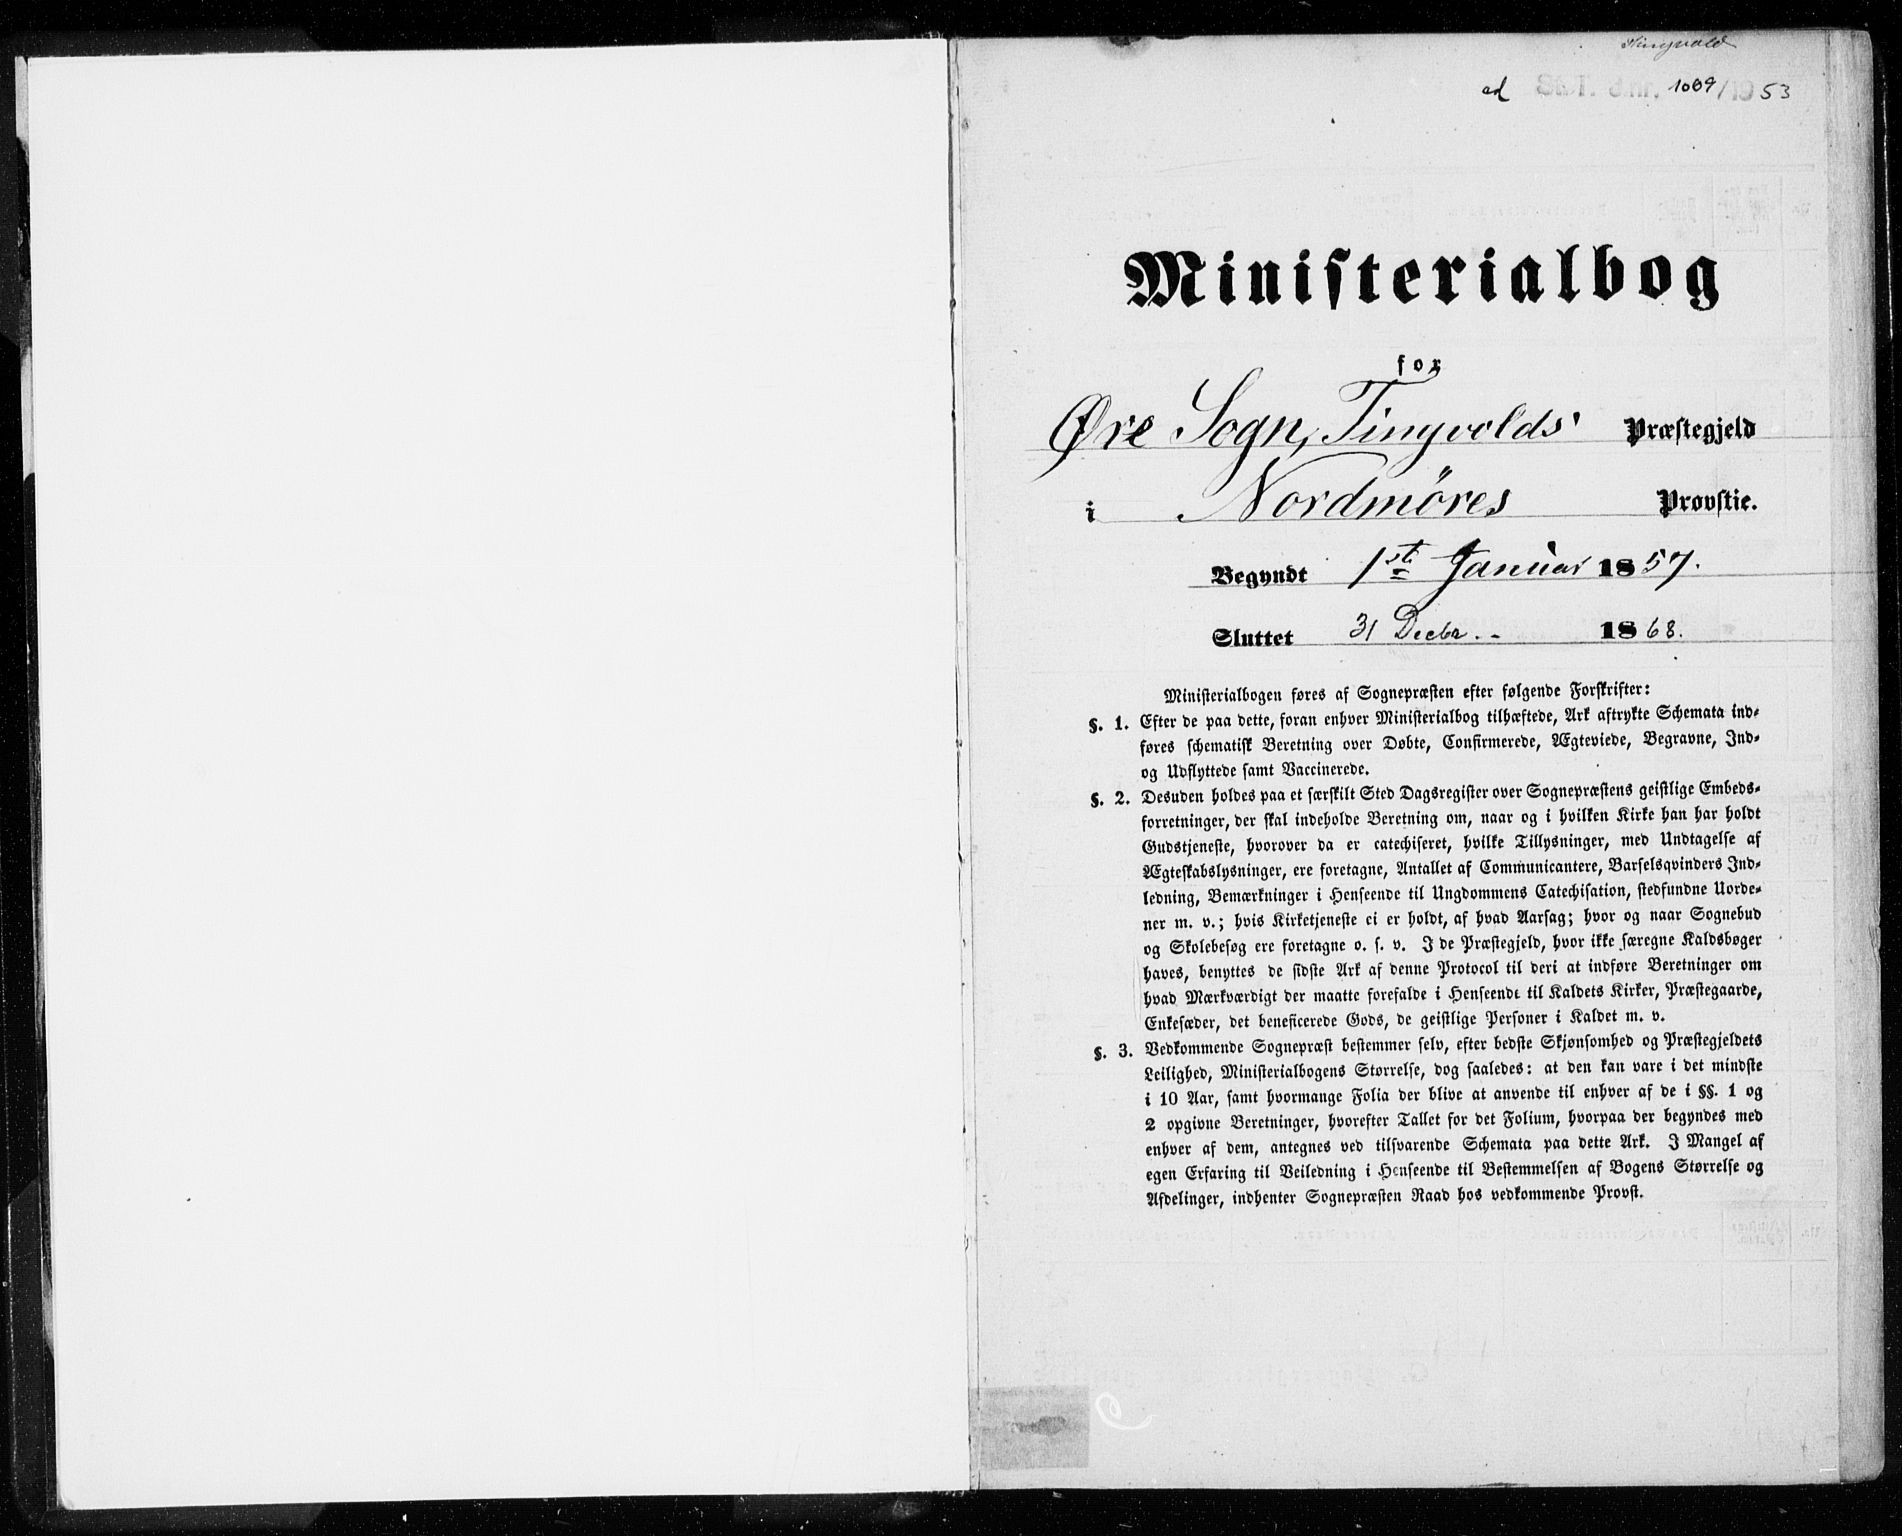 Tingvold
ad St.T. d.nr. 1089/1953
Ministerialbog
for
Øre Sogn, Tingvolds' Præstegjeld
i Nordmöres Provstie.
Begyndt 1st Januar 1857.
Sluttet 31 Decbr. 1868.
Ministerialbogen føres af Sognepræsten efter følgende Forskrifter:
§. 1. Efter de paa dette, foran enhver Ministerialbog tilhæftede, Ark aftrykte Schemata ind-
føres schematisk Beretning over Døbte, Confirmerede, Ægteviede, Begravne, Ind-
og Udflyttede samt Vaccinerede.
§. 2. Desuden holdes paa et særskilt Sted Dagsregister over Sognepræstens geistlige Embeds-
forretninger, der skal indeholde Beretning om, naar og i hvilken Kirke han har holdt
Gudstjeneste, hvorover da er catechiseret, hvilke Tillysninger, med Undtagelse af
Ægteskabslysninger, ere foretagne, Antallet af Communicantere, Barselsqvinders Ind-
ledning, Bemærkninger i Henseende til Ungdommens Catechisation, stedfundne Uorde-
ner m. v.; hvis Kirketjeneste ei er holdt, af hvad Aarsag; hvor og naar Sognebud
og Skolebesøg ere foretagne o. s. v. I de Præstegjeld, hvor ikke særegne Kaldsbøger
haves, benyttes de sidste Ark af denne Protocol til deri at indføre Beretninger om
hvad Mærkværdigt der maatte forefalde i Henseende til Kaldets Kirker, Præstegaarde,
Enkesæder, det beneficerede Gods, de geistlige Personer i Kaldet m. v.
§. 3. Vedkommende Sognepræst bestemmer selv, efter bedste Skjønsomhed og Præstegjeldets
Leilighed, Ministerialbogens Størrelse, dog saaledes: at den kan vare i det mindste
i 10 Aar, samt hvormange Folia der blive at anvende til enhver af de i §§. 1 og
2 opgivne Beretninger, hvorefter Tallet for det Folium, hvorpaa der begyndes med
enhver af dem, antegnes ved tilsvarende Schemata paa dette Ark. I Mangel af
egen Erfaring til Veiledning i Henseende til Bestemmelsen af Bogens Størrelse og
Afdelinger, indhenter Sognepræsten Raad hos vedkommende Provst.